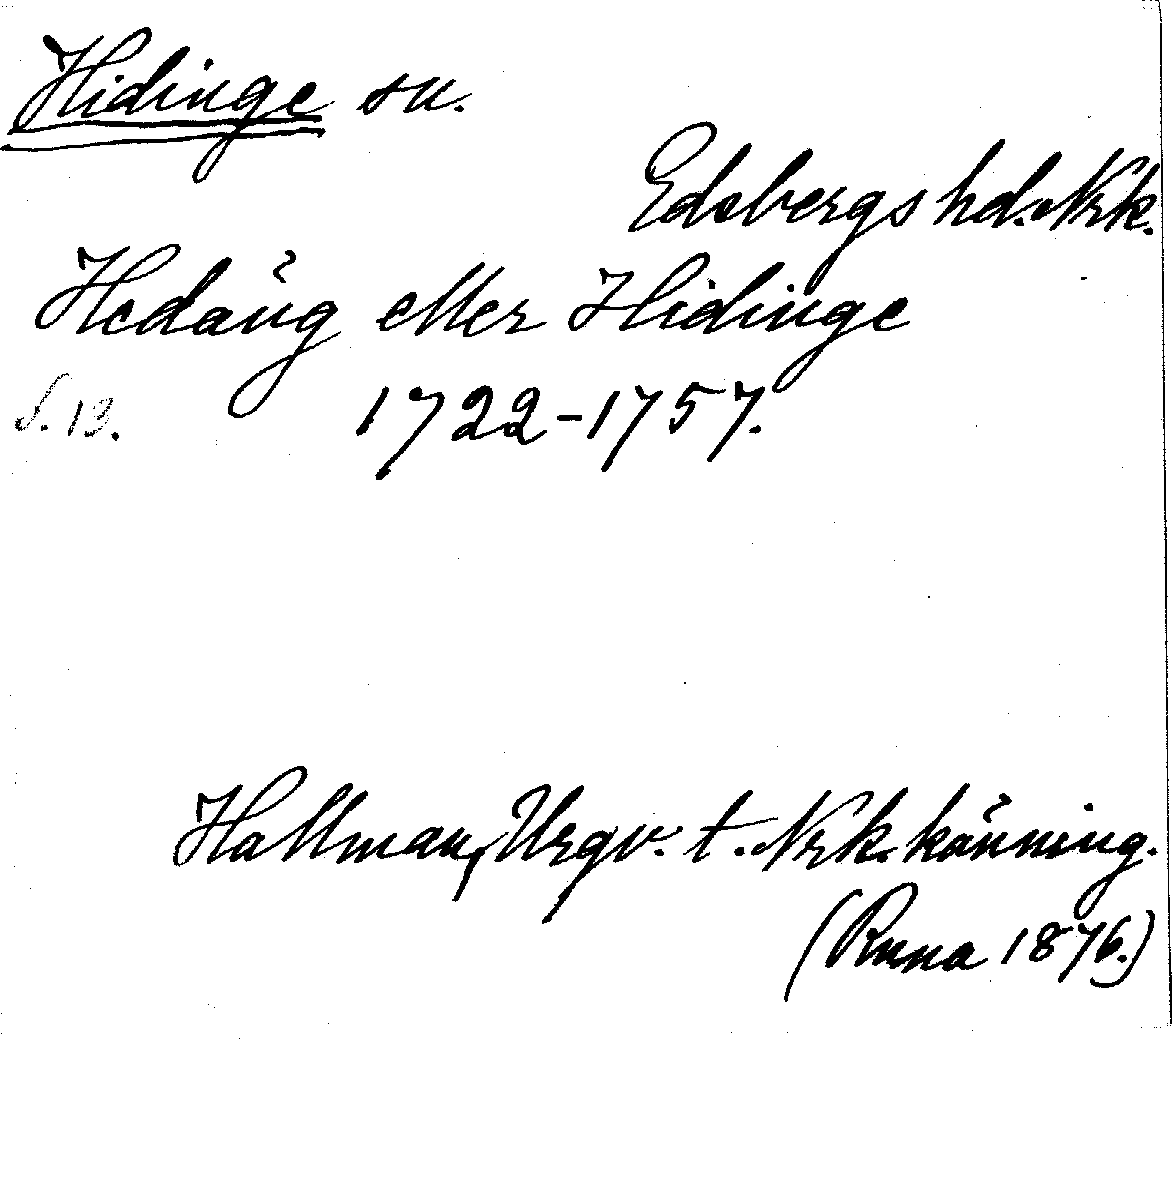 Hidinge sn.
Edsbergs hd. Nrk.
Hedäng eller Hidinge
s. 13. 1722-1757.
Hallman, Urgv. t. Nrk. känning.
(Runa 1876.)